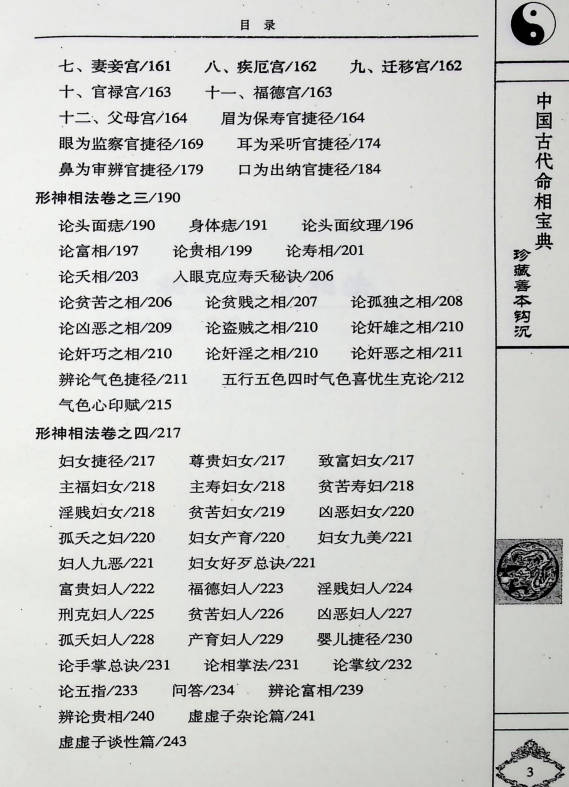 目 录
七、妻妾宫/161 八、疾厄宫/162 九、迁移宫/162
十、官禄宫/163 十一、福德宫/163
十二、父母宫/164 眉为保寿官捷径/164
眼为监察官捷径/169 耳为采听官捷径/174
鼻为审辨官捷径/179 口为出纳官捷径/184
形神相法卷之三/190
论头面痣/190 身体痣/191 论头面纹理/196
论富相/197 论贵相/199 论寿相/201
论夭相/203 人眼克应寿夭秘诀/206
论贫苦之相/206 论贫贱之相/207 论孤独之相/208
论凶恶之相/209 论盗贼之相/210 论奸雄之相/210
论奸巧之相/210 论奸淫之相/210 论奸恶之相/211
辨论气色捷径/211 五行五色四时气色喜忧生克论/212
气色心印赋/215
形神相法卷之四/217
妇女捷径/217 尊贵妇女/217 致富妇女/217
主福妇女/218 主寿妇女/218 贫苦寿妇/218
淫贱妇女/218 贫苦妇女/219 凶恶妇女/220
孤夭之妇/220 妇女产育/220 妇女九美/221
妇人九恶/221 妇女好歹总诀/221
富贵妇人/222 福德妇人/223 淫贱妇人/224
刑克妇人/225 贫苦妇人/226 凶恶妇人/227
孤夭妇人/228 产育妇人/229 婴儿捷径/230
论手掌总诀/231 论相掌法/231 论掌纹/232
论五指/233 问答/234 辨论富相/239
辨论贵相/240 虚虚子杂论篇/241
虚虚子谈性篇/243
中国古代命相宝典
珍藏善本钩沉
3